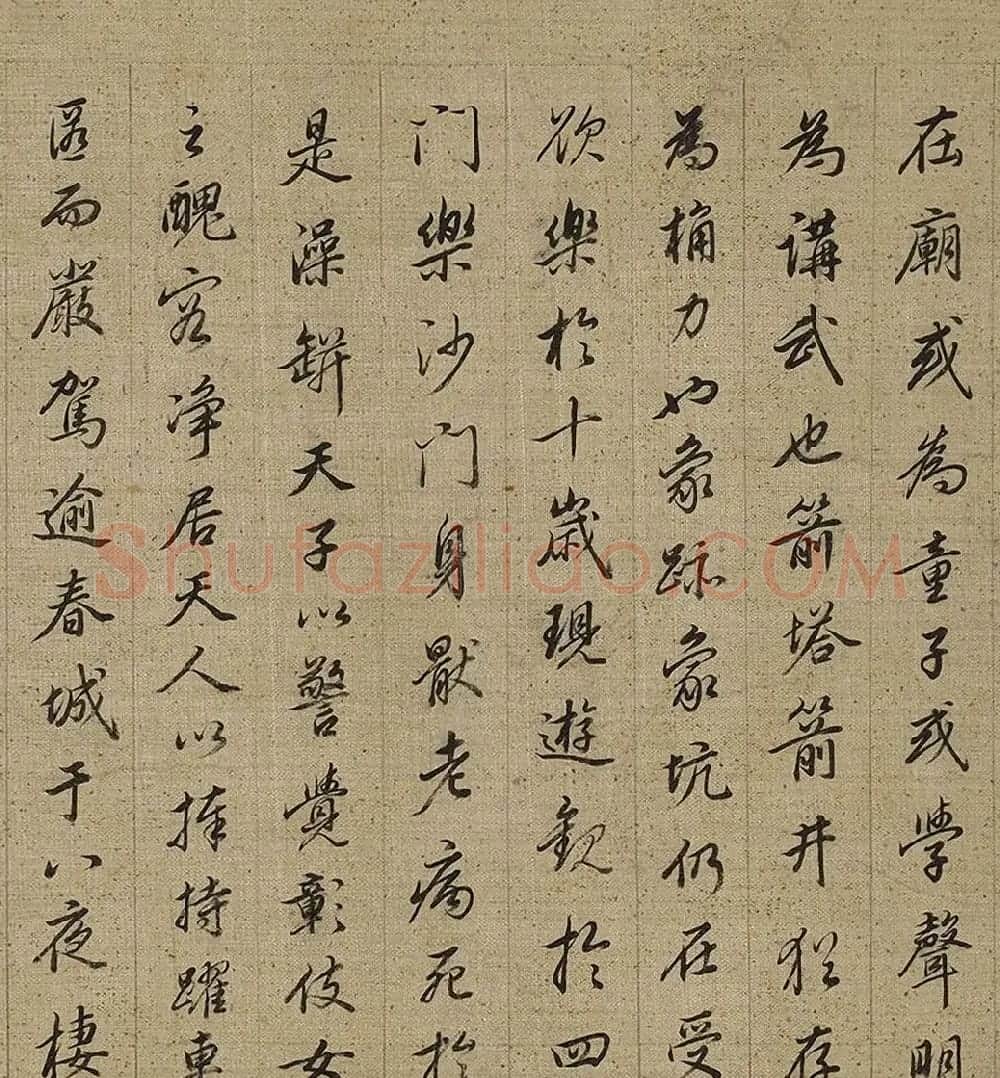 在廟或為童子或學聲明
為講武也箭塔箭井猶存
為桷力也象跡象坑仍在受
欲樂於十歲現遊觀於四
門樂沙門身厭老病死於
是澡缾天子以警覺彰伎女
之醜容淨居天人以捧持躍車
匿而嚴駕逾春城于八夜棲
Shufaziliao.COM